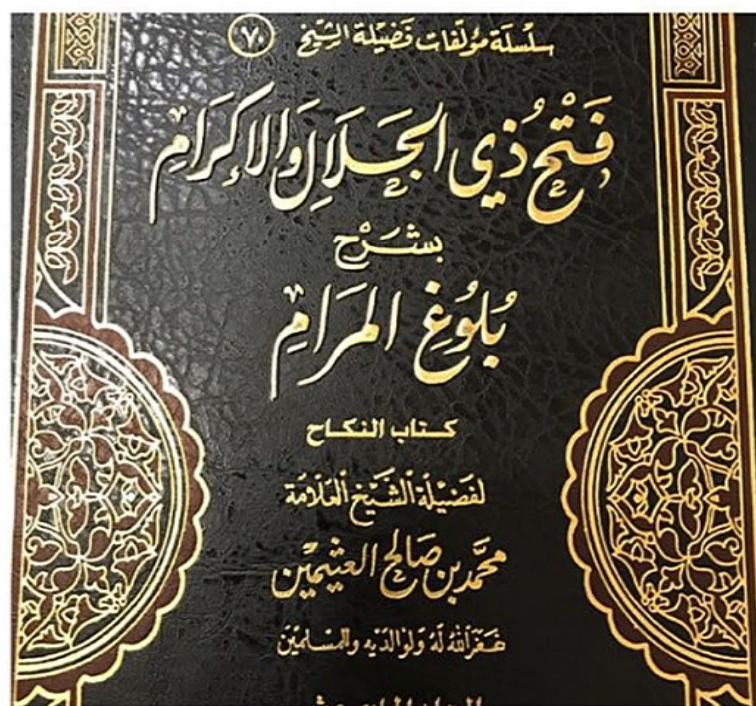 سلسلة مؤلفات فضيلة الشيخ ٧٠
فَتْحُ ذِي الجَلَالِ وَالإِكْرَامِ
بِشَرْحِ
بُلُوغِ المَرَامِ
كتاب النكاح
لفَضيْلَة الشَّيْخ العَلّامَة
محمَّد بن صَالح العثيمين
غفَر اللهُ لَهُ ولوَالدَيْه والمُسلمِيْن